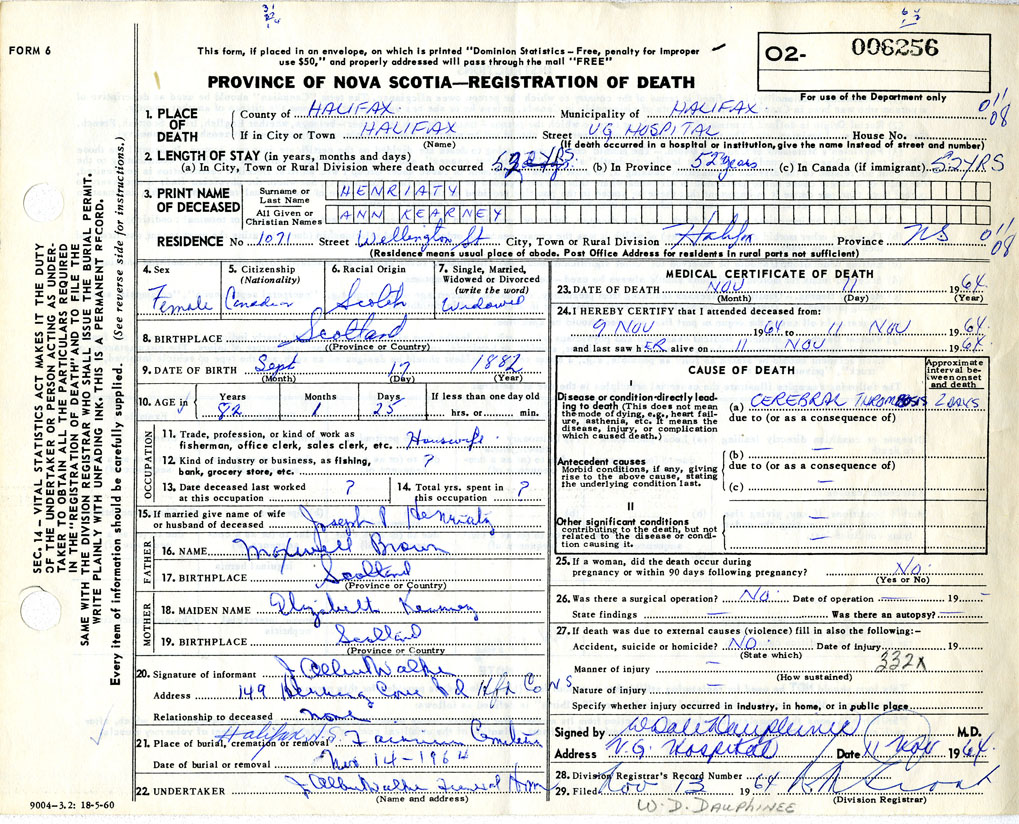 FORM 6
This form, if placed in an envelope, on which is printed "Dominion Statistics – Free, penalty for improper
use $50," and properly addressed will pass through the mail "FREE"
02- 006256
For use of the Department only
PROVINCE OF NOVA SCOTIA—REGISTRATION OF DEATH
1. PLACE OF DEATH
County of HALIFAX Municipality of HALIFAX
If in City or Town HALIFAX Street VG HOSPITAL House No.
(Name) (If death occurred in a hospital or institution, give the name instead of street and number)
011
08
2. LENGTH OF STAY (in years, months and days)
(a) In City, Town or Rural Division where death occurred 52 yrs. (b) In Province 52 years (c) In Canada (if immigrant) 52 YRS
3. PRINT NAME OF DECEASED
Surname or Last Name HENRIATY
All Given or Christian Names ANN KEARNEY
RESIDENCE No 1071 Street Wellington St City, Town or Rural Division Halifax Province NS
011
08
(Residence means usual place of abode. Post Office Address for residents in rural parts not sufficient)
4. Sex
Female
5. Citizenship
(Nationality)
Canadian
6. Racial Origin
Scotch
7. Single, Married,
Widowed or Divorced
(write the word)
Widowed
8. BIRTHPLACE Scotland
(Province or Country)
9. DATE OF BIRTH Sept 17 1882
(Month) (Day) (Year)
10. AGE in
Years Months Days If less than one day old
82 1 25 hrs. or min.
OCCUPATION
11. Trade, profession, or kind of work as
fisherman, office clerk, sales clerk, etc. Housewife
12. Kind of industry or business, as fishing,
bank, grocery store, etc. ?
13. Date deceased last worked
at this occupation ?
14. Total yrs. spent in
this occupation ?
15. If married give name of wife
or husband of deceased Joseph P Henriaty
FATHER
16. NAME Maxwell Brown
17. BIRTHPLACE Scotland
(Province or Country)
MOTHER
18. MAIDEN NAME Elizabeth Kearney
19. BIRTHPLACE Scotland
(Province or Country
20. Signature of informant J Albert Walker
Address 149 Herring Cove Rd Hfx Co NS
Relationship to deceased none
21. Place of burial, cremation or removal Halifax N.S. Fairview Cemetery
Date of burial or removal Nov 14-1964
22. UNDERTAKER J Albert Walker Funeral Home
(Name and address)
9004-3.2: 18-5-60
MEDICAL CERTIFICATE OF DEATH
23. DATE OF DEATH NOV 11 1964
(Month) (Day) (Year)
24. I HEREBY CERTIFY that I attended deceased from:
9 NOV 1964 to 11 NOV 1964
and last saw hER alive on 11 NOV 1964
CAUSE OF DEATH
Approximate
interval be-
tween onset
and death
I
Disease or condition directly lead-
ing to death (This does not mean
the mode of dying, e.g., heart fail-
ure, asthenia, etc. It means the
disease, injury, or complication
which caused death.)
(a) CEREBRAL THROMBOSIS 2 DAYS
due to (or as a consequence of)
Antecedent causes
Morbid conditions, if any, giving
rise to the above cause, stating
the underlying condition last.
(b) —
due to (or as a consequence of)
(c) —
II
Other significant conditions
contributing to the death, but not
related to the disease or condi-
tion causing it.
—
—
25. If a woman, did the death occur during
pregnancy or within 90 days following pregnancy? NO
(Yes or No)
26. Was there a surgical operation? NO Date of operation — 19 —
State findings — Was there an autopsy? —
27. If death was due to external causes (violence) fill in also the following:–
Accident, suicide or homicide? NO Date of injury 19
(State which)
332X
Manner of injury —
(How sustained)
Nature of injury —
Specify whether injury occurred in industry, in home, or in public place
Signed by W Dale Dauphinee M.D.
Address V.G. Hospital Date 11 Nov 1964
28. Division Registrar's Record Number
29. Filed Nov 13 1964
(Division Registrar)
W. D. DAUPHINEE
SEC. 14 – VITAL STATISTICS ACT MAKES IT THE DUTY
OF THE UNDERTAKER OR PERSON ACTING AS UNDER-
TAKER TO OBTAIN ALL THE PARTICULARS REQUIRED
IN THE "REGISTRATION OF DEATH" AND TO FILE THE
SAME WITH THE DIVISION REGISTRAR WHO SHALL ISSUE THE BURIAL PERMIT.
WRITE PLAINLY WITH UNFADING INK. THIS IS A PERMANENT RECORD.
Every item of information should be carefully supplied. (See reverse side for instructions.)